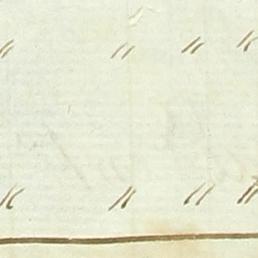 " " " "
" " " "